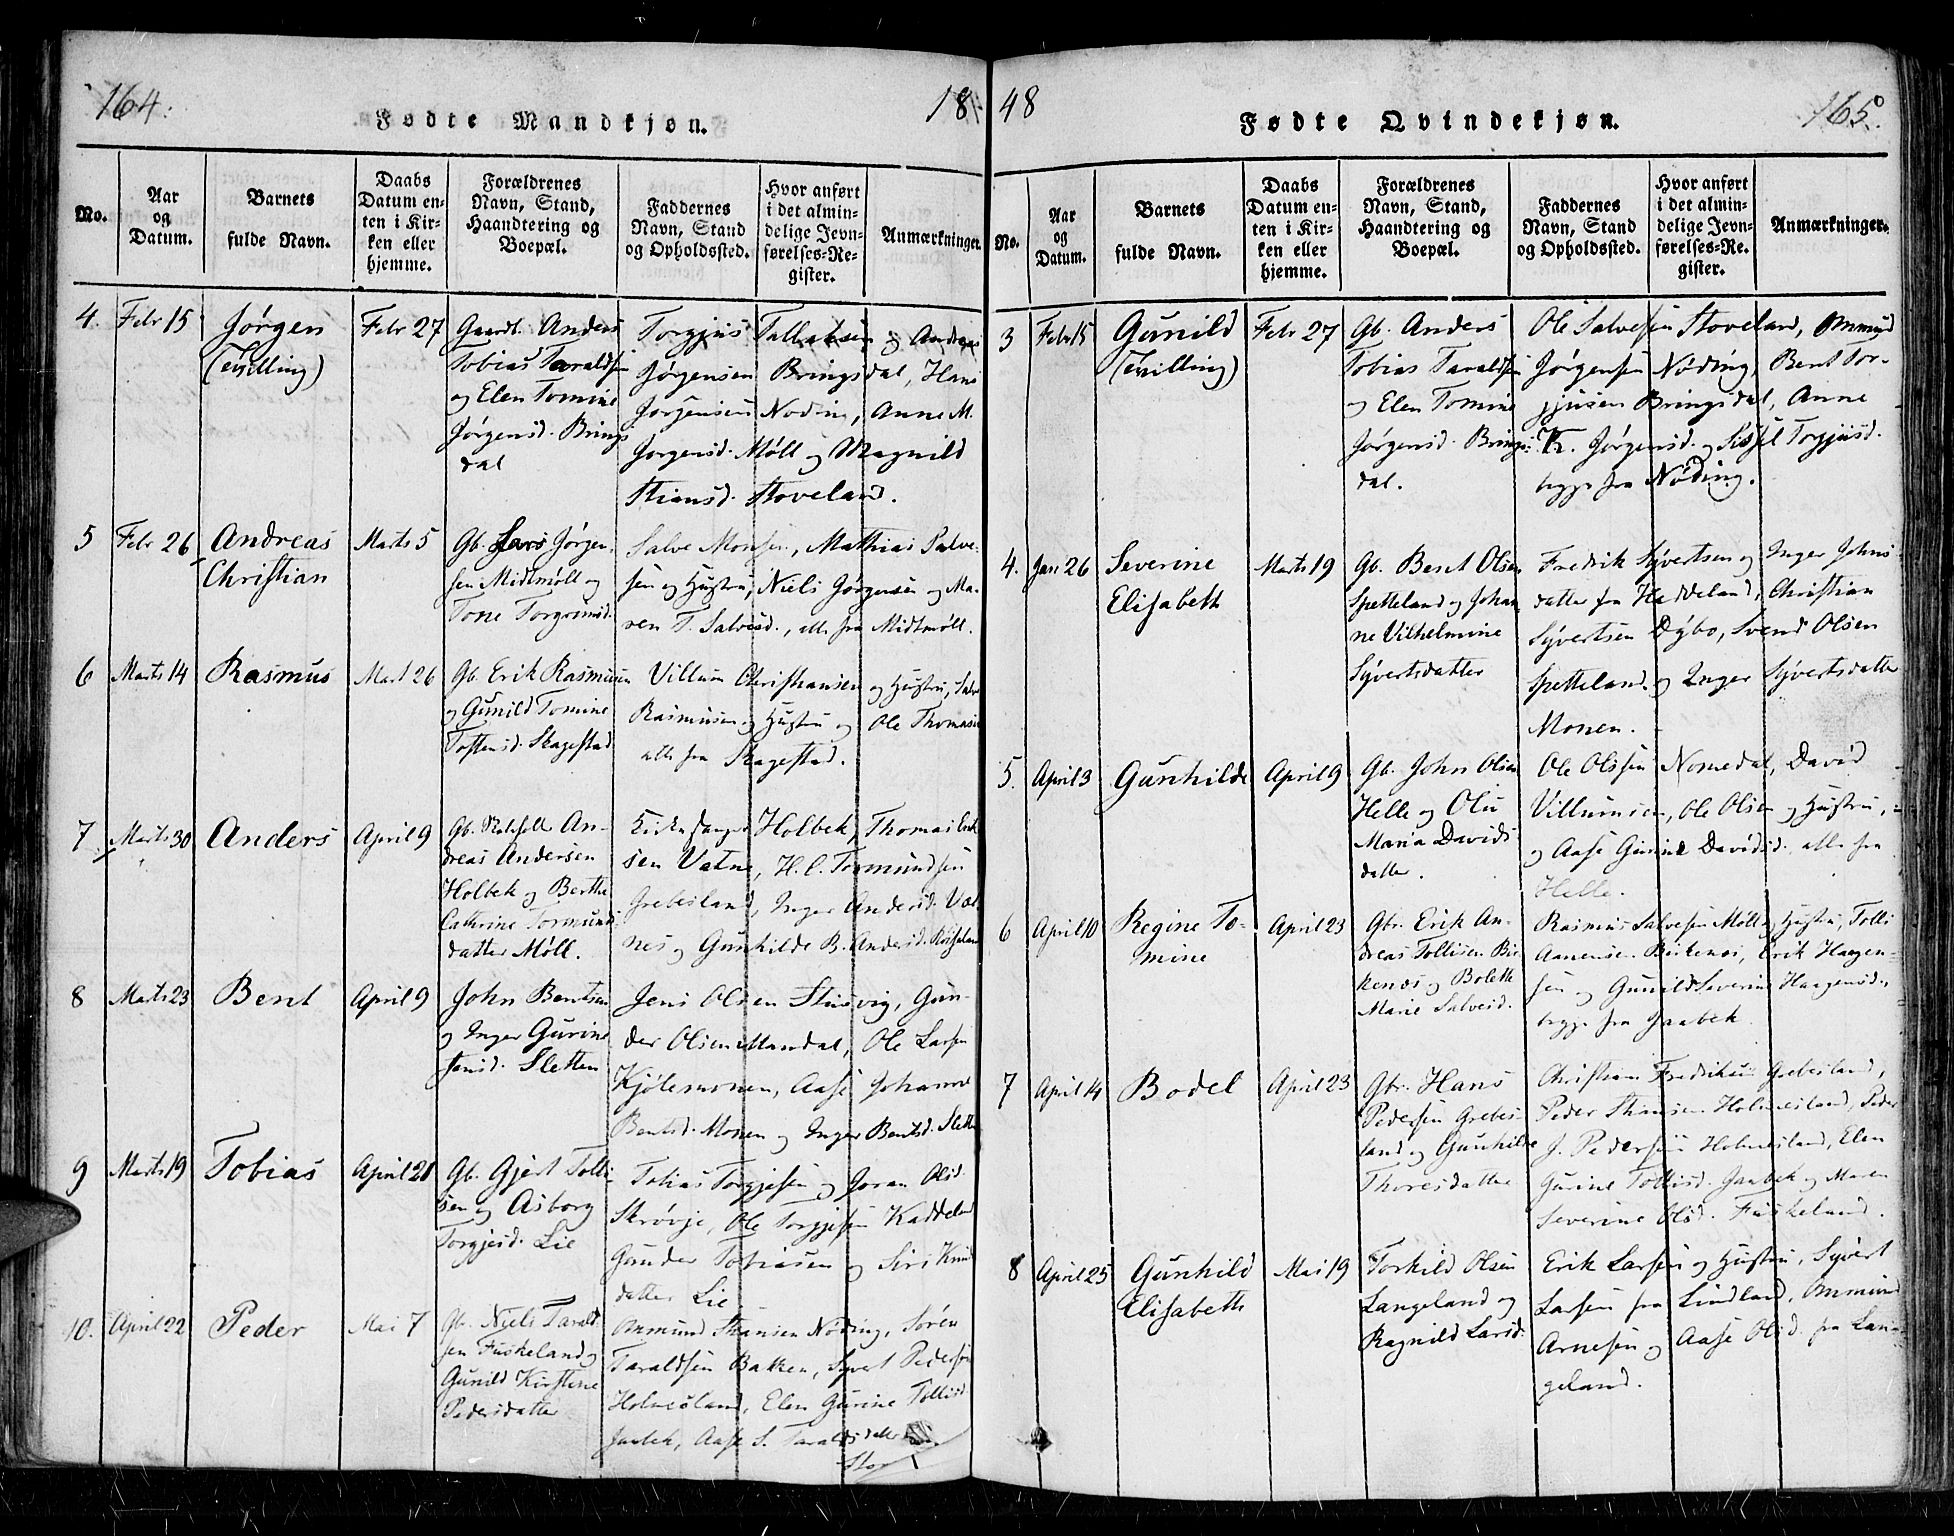 164.
18
Fødte Mandkjøn.
No.
Aar
og
Datum.
Barnets
fulde Navn.
Daabs
Datum en-
ten i Kir-
ken eller
hjemme.
Forældrenes
Navn, Stand,
Haandtering og
Boepæl.
Faddernes
Navn, Stand
og Opholdssted.
Hvor anført
i det almin-
delige Jevn-
førelses-Re-
gister.
Anmærkninger.
4.
Febr 15
Jørgen
(Tvilling)
Febr 27
Gaardb. Anders
Tobias Taraldsen
og Elen Tomine
Jørgensd. Brings
dal
Torgjus Tallaksen, og Andreas
Jørgensen Bringsdal, Hans
Jørgensen Noding, Anne M.
Jørgensd. Møll og Magnild
Stiansd. Stoveland.
5
Febr 26
Andreas
Christian
Marts 5
Gb. Lars Jørgen-
sen Midtmøll og
Tone Torgrimsd.
Salve Monsen, Mathias Salve-
sen og Hustru, Niels Jørgensen og Ma-
ren T. Salvesd., alle fra Midtmøll.
6
Marts 14
Rasmus
Mart 26
Gb. Erik Rasmusen
og Gunild Tomine
Toftensd. Skagestad
Villum Christiansen og Hustru, Salve
Rasmusen og Hustru og Ole Thomasen
alle fra Skagestad.
7
Marts 30
Anders
April 9
Gb. Rebsell. An-
dreas Andersen
Holbek og Berthe
Cathrine Tormunds
datter Møll.
Kirkesanger Holbek, Thomas Erik
sen Vatne, H. C. Tormundsen
Grebesland, Inger Andersd. Vat
nes og Gunhilde B. Andersd.
8
Marts 23
Bent
April 9
John Bentsen
og Inger Gurine
Jensd. Sletten
Jens Olsen Stusvig, Gun-
der Olsen Mandal, Ole Larsen
Kjølemonen, Aase Johanne
Bentsd. Monen og Inger Bentsd. Slette
9
Marts 19
Tobias
April 21
Gb. Gjert Tolli-
sen og Asborg
Torgjesd. Lie
Tobias Torgjesen og Joran Olsd.
Skrøvje, Ole Torgjesen Kaddeland
Gunder Tobiasen og Siri Knud
datter Lie
10.
April 22
Peder
Mai 7
Gb. Niels Tarald-
sen Fuskeland og
Gunild Kirstine
Pedersdatter
Anmund Stansen Nøding, Søren
Taraldsen Bakken, Syvert Pedersen
Holmesland, Elen Gurine Tollisd.
Jaabek, Aase S. Taraldsdatter
48
165.
Fødte Qvindekjøn.
No.
Aar
og
Datum.
Barnets
fulde Navn.
Daabs
Datum en-
ten i Kir-
ken eller
hjemme.
Forældrenes
Navn, Stand,
Haandtering og
Boepæl.
Faddernes
Navn, Stand
og Opholdssted.
Hvor anført
i det almin-
delige Jevn-
førelses-Re-
gister.
Anmærkninger.
3
Febr 15
Gunild
(Tvilling)
Febr 27
Gb. Anders
Tobias Taraldsen
og Elen Tomine
Jørgensd. Brings-
dal.
Ole Salvesen Stoveland, Anmund
Jørgensen Nøding, Bent Tor-
gjusen Bringsdal, Anne
K. Jørgensd. og Sissel Torgjusd.
begge fra Nøding.
4.
Jan 26
Severine
Elisabeth
Marts 19
Gb. Bent Olsen
Spetteland og Johan
ne Vilhelmine
Syvertsdatter
Fredrik Syvertsen og Inger Johns
datter fra Haddeland, Christian
Syvertsen Dybo, Svend Olsen
Spetteland og Inger Syvertsdatter
Monen.
5.
April 3
Gunhilde
April 9
Gb. John Olsen
Helle og Olu
Maria Davids
datter.
Ole Olssen Nomedal, David
Villumsen, Ole Olsen og Hustru,
og Aase Gurine Davidsd. alle fra
Helle.
6
April 10
Regine To-
mine
April 23
Gbr. Erik An-
dreas Tollisen Bir
kenæs og Bolette
Marie Salvesd.
Rasmus Salvesen Møll og Hustru, Tolli
Aanensen Birkenes, Erik Haagen-
sen og Gunild Severine Haagensd.,
begge fra Jaabek.
7
April 14
Bodel
April 23
Gbr. Hans
Pedersen Grebes-
land og Gunhilde
Thoresdatter
Christian Fredriksen Grebesland,
Peder Stiansen Holmesland, Peder
J. Pedersen Holmesland, Elen
Gurine Tollisd. Jaabek og Maren
Severine Olsd. Fuskeland.
8
April 25
Gunhild
Elisabeth
Mai 19
Torkild Olsen
Langeland og
Ragnild Larsd.
Erik Larsen og Hustru, Syvert
Larsen fra Lindland, Anmund
Arnesen og Aase Olsd. fra Lan-
geland.